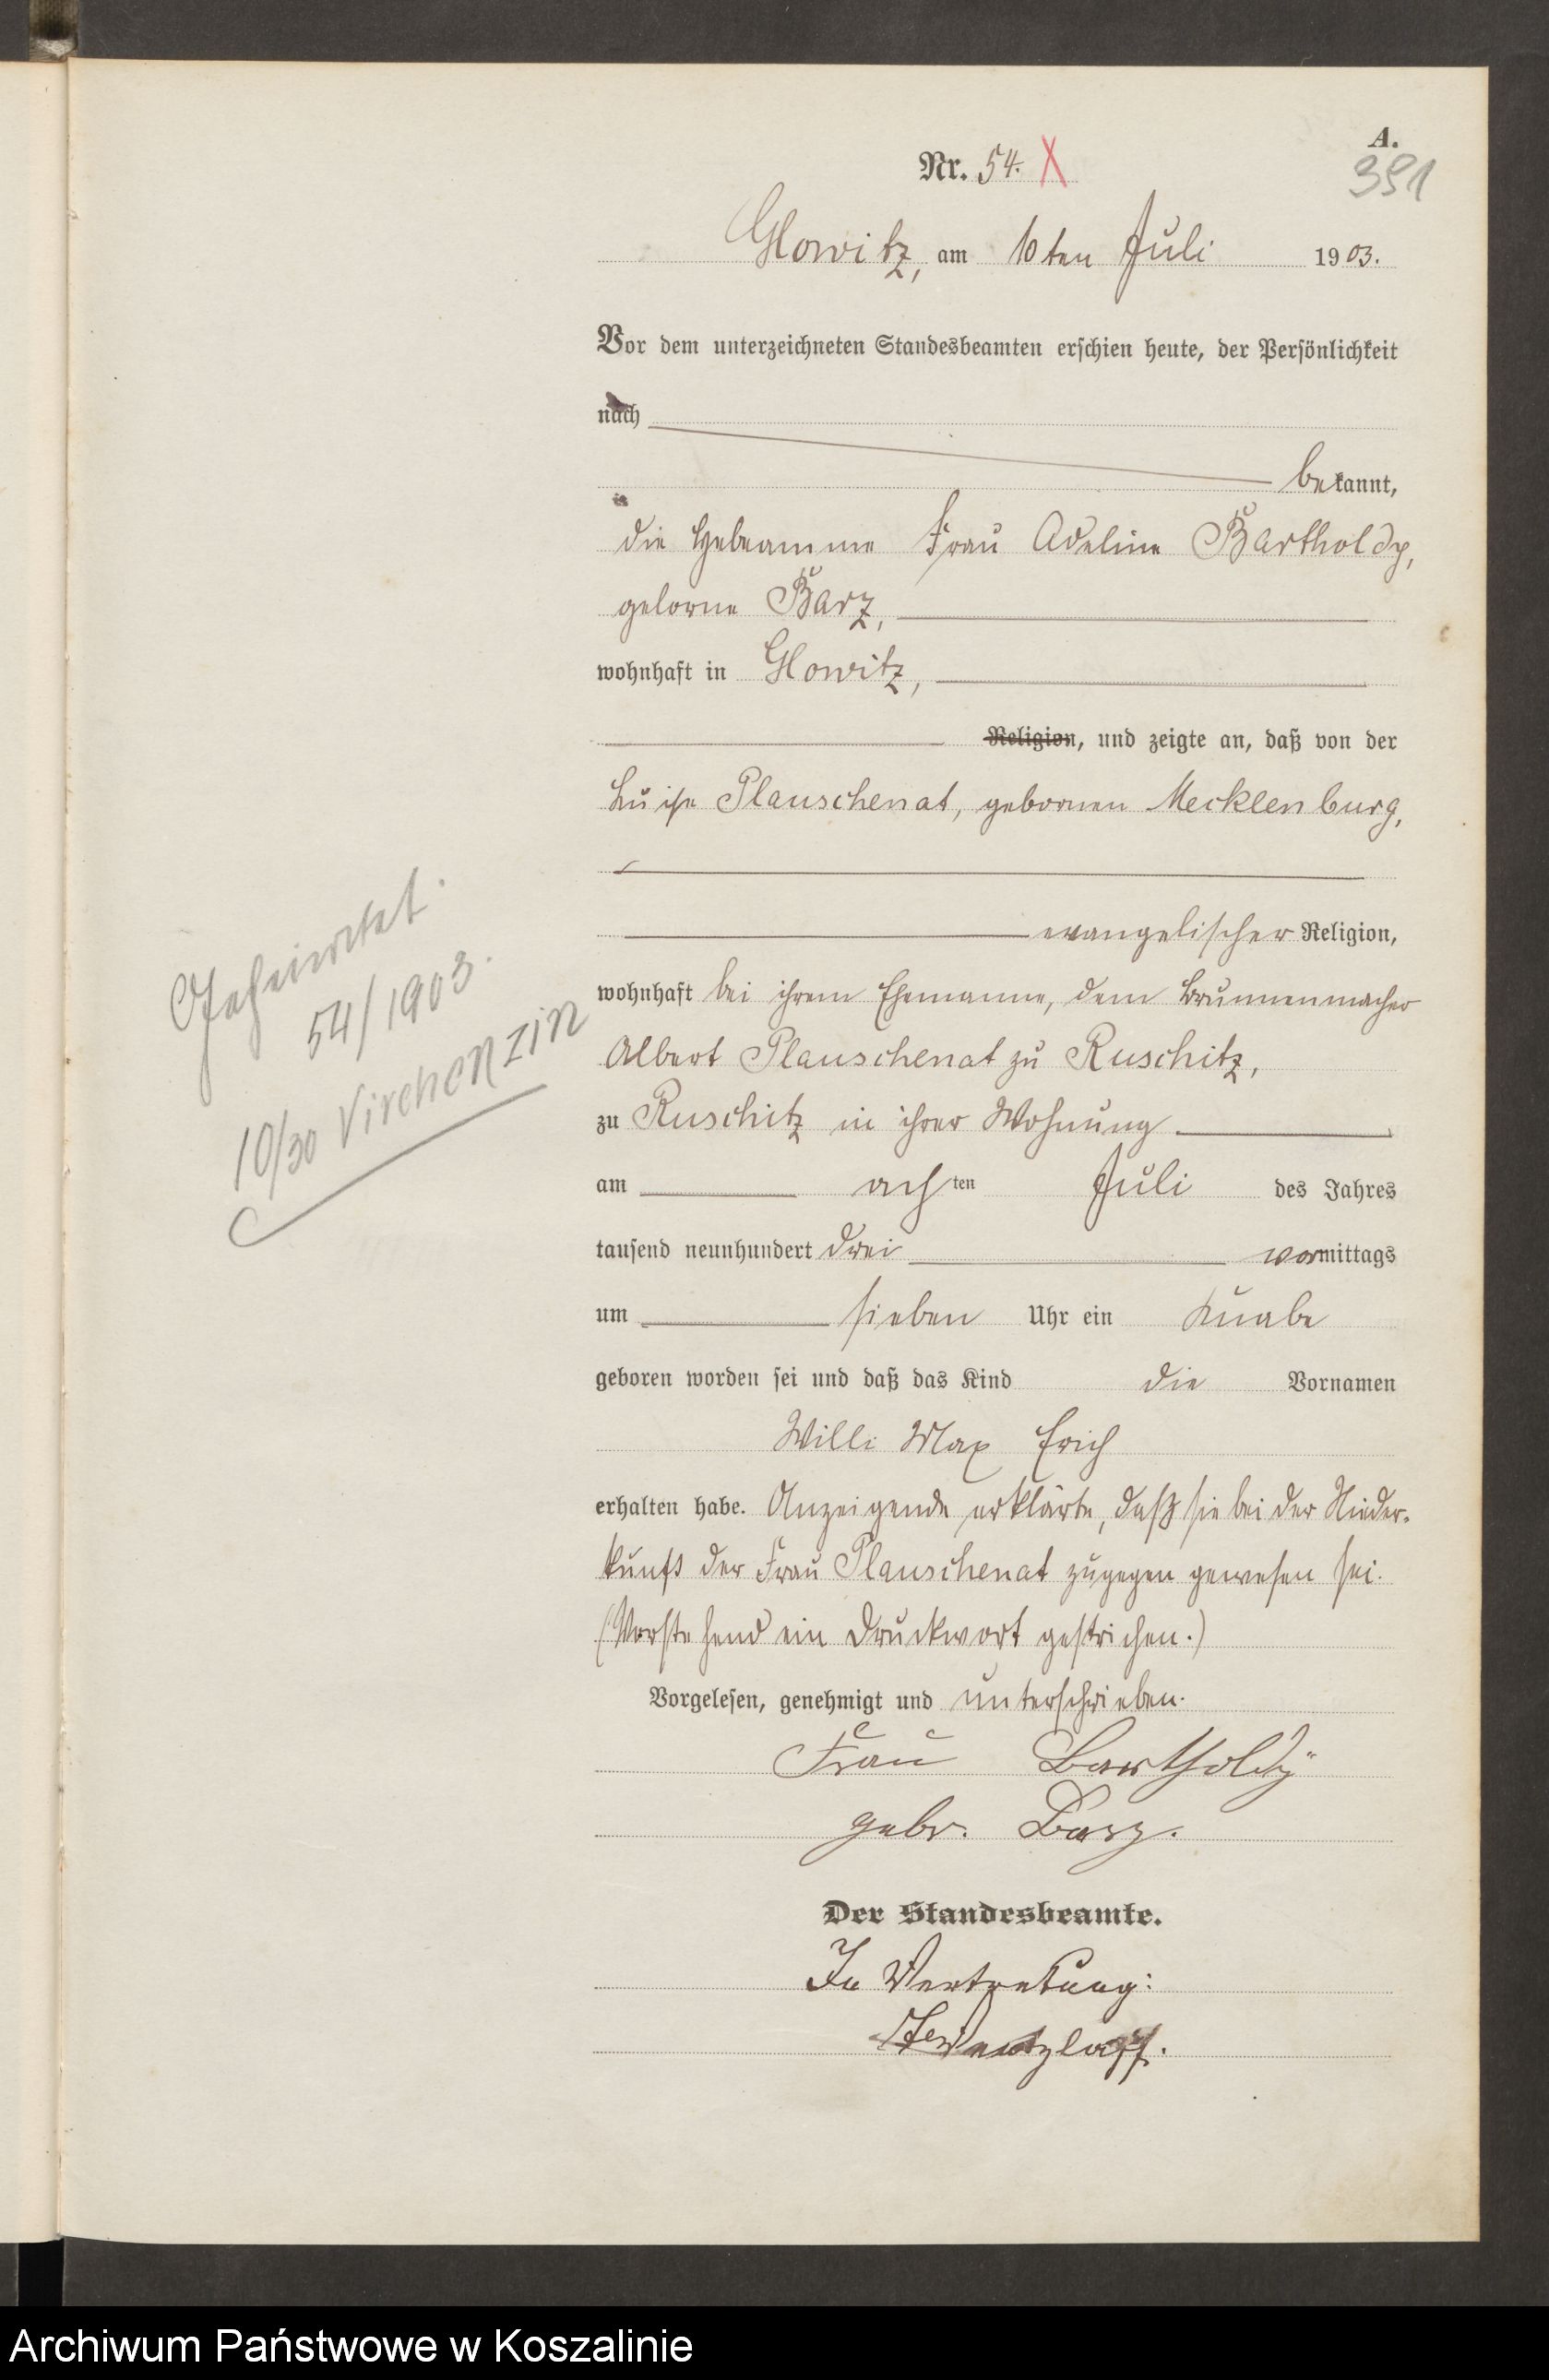 A.
391
Nr. 54. X
Glowitz, am 10ten Juli 1903.
Vor dem unterzeichneten Standesbeamten erschien heute, der Persönlichkeit
nach
bekannt,
die Hebeamme Frau Adeline Bartholdy,
geborne Barz,
wohnhaft in Glowitz,
Religion, und zeigte an, daß von der
Luise Plauschenat, gebornen Mecklenburg,
evangelischer Religion,
wohnhaft bei ihrem Ehemanne, dem Brunnenmacher
Albert Plauschenat zu Ruschitz,
zu Ruschitz in ihrer Wohnung
am achten Juli des Jahres
tausend neunhundert drei vormittags
um sieben Uhr ein Knabe
geboren worden sei und daß das Kind die Vornamen
Willi Max Erich
erhalten habe. Anzeigende erklärte, daß sie bei der Nieder-
kunft der Frau Plauschenat zugegen gewesen sei.
(Vorstehend ein Druckwort gestrichen.)
Vorgelesen, genehmigt und unterschrieben.
Frau Bartholdÿ
gebr. Barz.
Der Standesbeamte.
In Vertretung:
Wentzlaff.
Geheiratet.
54/1903.
10/30 Virchenzin
Archiwum Państwowe w Koszalinie